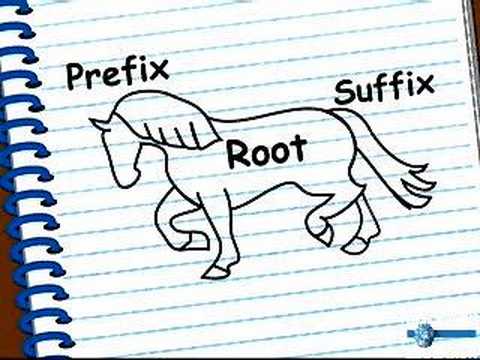 Prefix
Suffix
Root